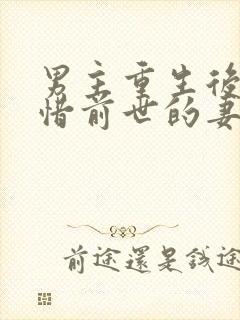 男主重生後
惜前世的妻
前途還是錢途